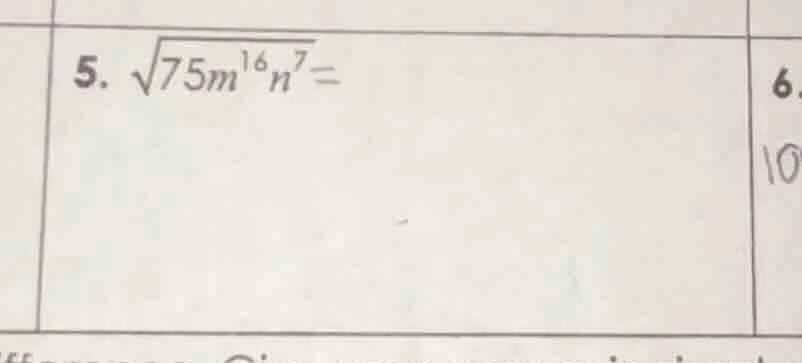 5. √75m¹⁶n⁷=
6.
10